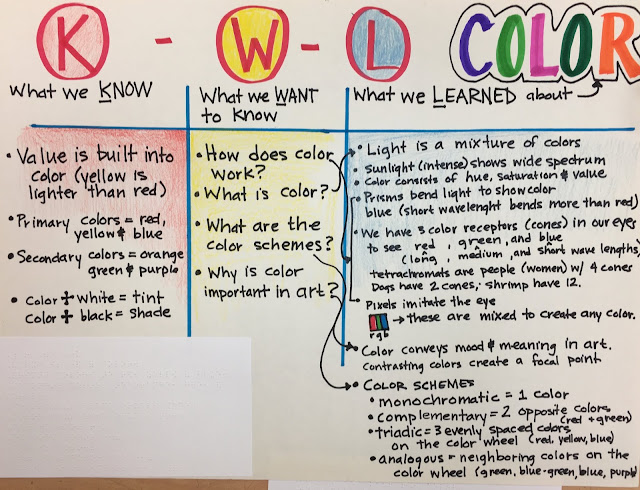 K - W - L COLOR
What we KNOW
• Value is built into
color (yellow is
lighter than red)
• Primary colors = red,
yellow & blue
• Secondary colors = orange
green & purple
• Color + white = tint
Color + black = shade
What we WANT
to know
• How does color
work?
• What is color?
• What are the
color schemes?
• Why is color
important in art?
What we LEARNED about
• Light is a mixture of colors
• Sunlight (intense) shows wide spectrum
• Color consists of hue, saturation & value
• Prisms bend light to show color
blue (short wavelenght bends more than red)
• We have 3 color receptors (cones) in our eyes
to see red, green, and blue
(long, medium, and short wave lengths,
tetrachromats are people (women) w/ 4 cones
Dogs have 2 cones, shrimp have 12.
• Pixels imitate the eye
→ these are mixed to create any color.
r g b
• Color conveys mood & meaning in art.
Contrasting colors create a focal point
• COLOR SCHEMES
• monochromatic = 1 color
• complementary = 2 opposite colors
(red + green)
• triadic = 3 evenly spaced colors
on the color wheel (red, yellow, blue)
• analogous = neighboring colors on the
color wheel (green, blue-green, blue, purple)